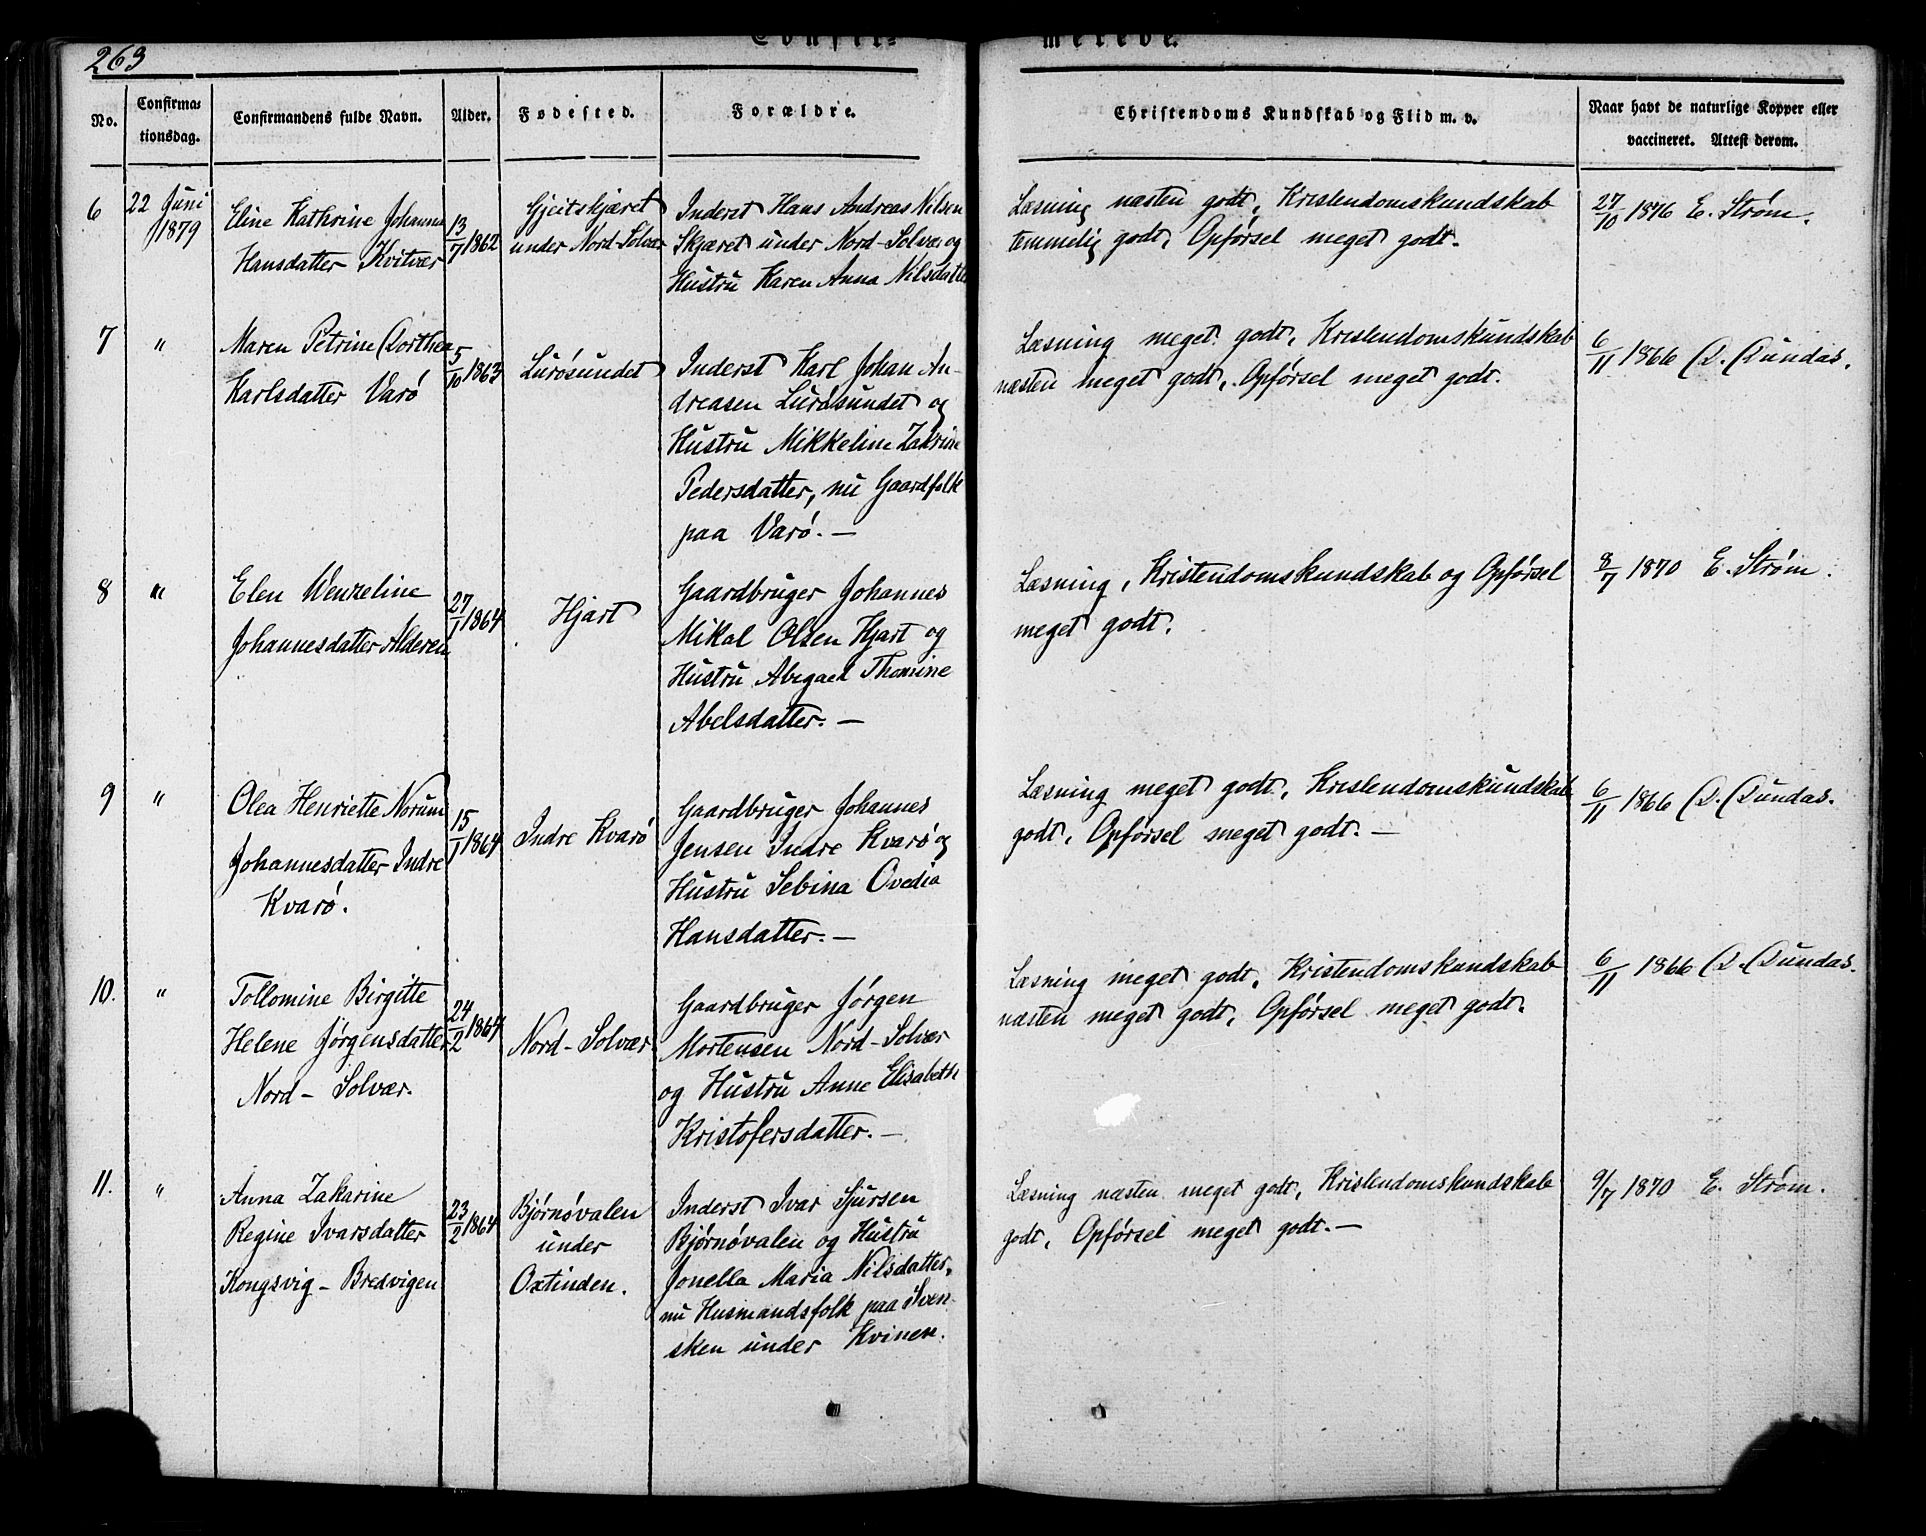 263
Confir= merede.
No.
Confirma=
tionsdag.
Confirmandens fulde Navn.
Alder.
Fødested.
Forældre.
Christendoms Kundskab og Flid m. v.
Naar havt de naturlige Kopper eller
vaccineret. Attest derom.
6
22 Juni
1879
Eline Kathrine Johanna
Hansdatter Kvitvær
13/7 1862
Gjeitskjæret
under Nord-Solvær
Inderst Hans Andreas Nilsen
Skjæret under Nord-Solvær og
Hustru Karen Anna Nilsdatter
Læsning næsten godt, Kristendomskundskab
temmelig godt, Opførsel meget godt.
27/10 1876 E. Strøm.
7
"
Maren Petrine Dorthea
Karlsdatter Varø
5/10 1863
Lurøsundet
Inderst Karl Johan An-
dreasen Lurøsundet og
Hustru Mikkeline Zakrine
Pedersdatter, nu Gaardfolk
paa Varø. —
Læsning meget godt, Kristendomskundskab
næsten meget godt, Opførsel meget godt.
6/11 1866 D. Dundas.
8
"
Elen Wenzeline
Johannesdatter Alderen
27/1 1864
Hjart
Gaardbruger Johannes
Mikal Olsen Hjart og
Hustru Abegael Thomine
Abelsdatter. —
Læsning, Kristendomskundskab og Opførsel
meget godt.
8/7 1870 E. Strøm.
9
"
Olea Henriette Norum
Johannesdatter Indre
Kvarø.
15/1 1864
Indre Kvarø
Gaardbruger Johannes
Jensen Indre Kvarø og
Hustru Sebina Ovedia
Hansdatter. —
Læsning meget godt, Kristendomskundskab
godt, Opførsel meget godt. —
6/11 1866 D. Dundas.
10.
"
Tollomine Birgitte
Helene Jørgensdatter
Nord- Solvær.
24/2 1864
Nord-Solvær
Gaardbruger Jørgen
Mortensen Nord-Solvær
og Hustru Anne Elisabeth
Kristofersdatter. —
Læsning meget godt, Kristendomskundskab
næsten meget godt, Opførsel meget godt.
6/11 1866 D. Dundas.
11.
"
Anna Zakarine
Regine Ivarsdatter
Kongsvig - Bredvigen
23/2 1864
Bjørnøvalen
under
Oxtinden.
Inderst Ivar Sjursen
Bjørnøvalen og Hustru
Jonella Maria Nilsdatter,
nu Husmandsfolk paa Sven-
sken under Kvinen.
Læsning næsten meget godt, Kristendomskundskab
godt, Opførsel meget godt. —
9/7 1870 E. Strøm.